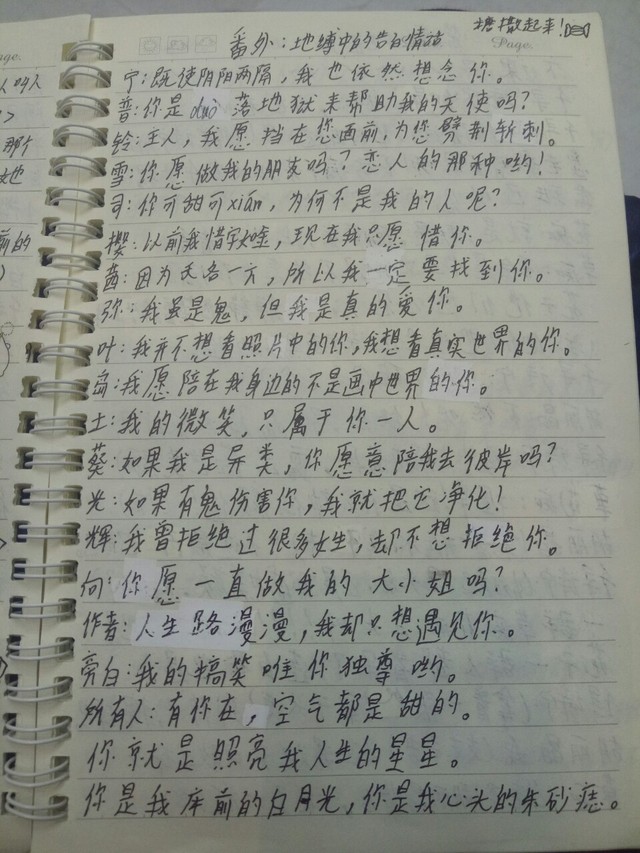 番外：地缚中的告白情话
糖撒起来！
Page.
宁：既使阴阳两隔，我也依然想念你。
普：你是duò落地狱来帮助我的天使吗？
铃：主人，我愿挡在您面前，为您劈荆斩刺。
雪：你愿做我的朋友吗？恋人的那种哟！
司：你可甜可xián，为何不是我的人呢？
樱：以前我惜字如哇，现在我只愿惜你。
茜：因为天各一方，所以我一定要找到你。
弥：我虽是鬼，但我是真的爱你。
叶：我并不想看照片中的你，我想看真实世界的你。
岛：我愿陪在我身边的不是画中世界的你。
土：我的微笑，只属于你一人。
葵：如果我是异类，你愿意陪我去彼岸吗？
光：如果有鬼伤害你，我就把它净化！
辉：我曾拒绝过很多女生，却不想拒绝你。
向：你愿一直做我的大小姐吗？
作者：人生路漫漫，我却只想遇见你。
旁白：我的搞笑唯你独尊哟。
所有人：有你在，空气都是甜的。
你就是照亮我人生的星星。
你是我床前的白月光，你是我心头的朱砂痣。